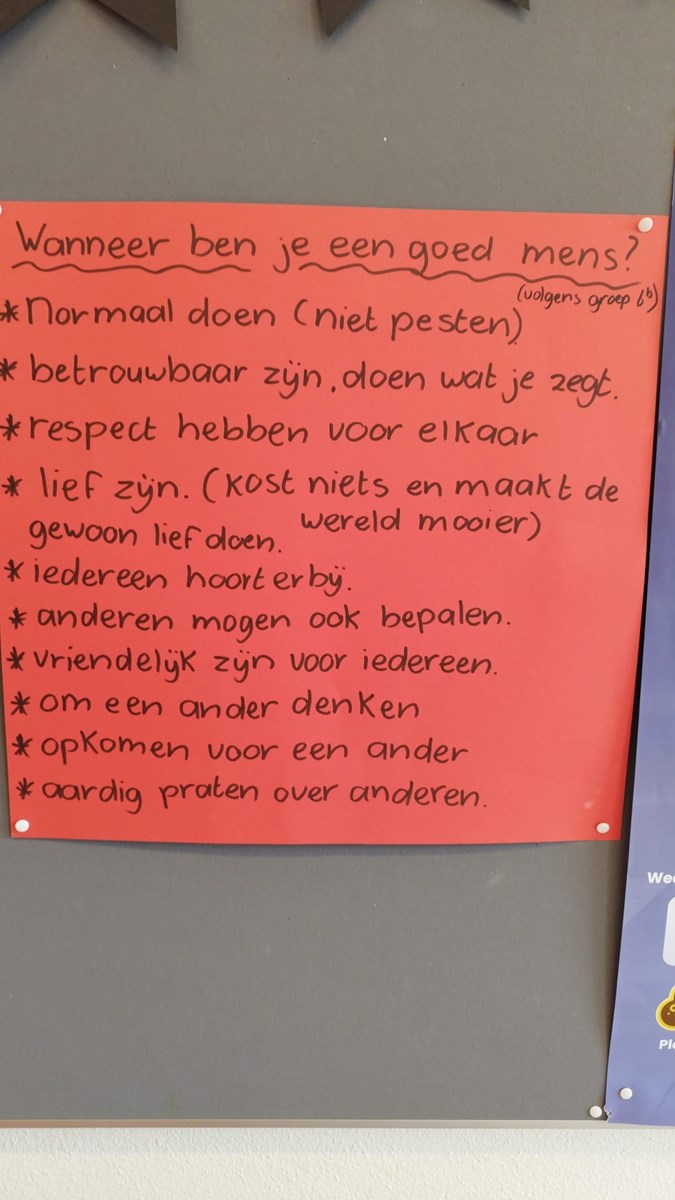 Wanneer ben je een goed mens?
(volgens groep 6b)
* Normaal doen (niet pesten)
* betrouwbaar zijn, doen wat je zegt.
* respect hebben voor elkaar
* lief zijn. (kost niets en maakt de
wereld mooier)
gewoon lief doen.
* iedereen hoort erbij.
* anderen mogen ook bepalen.
* vriendelijk zijn voor iedereen.
* om een ander denken
* opkomen voor een ander
* aardig praten over anderen.